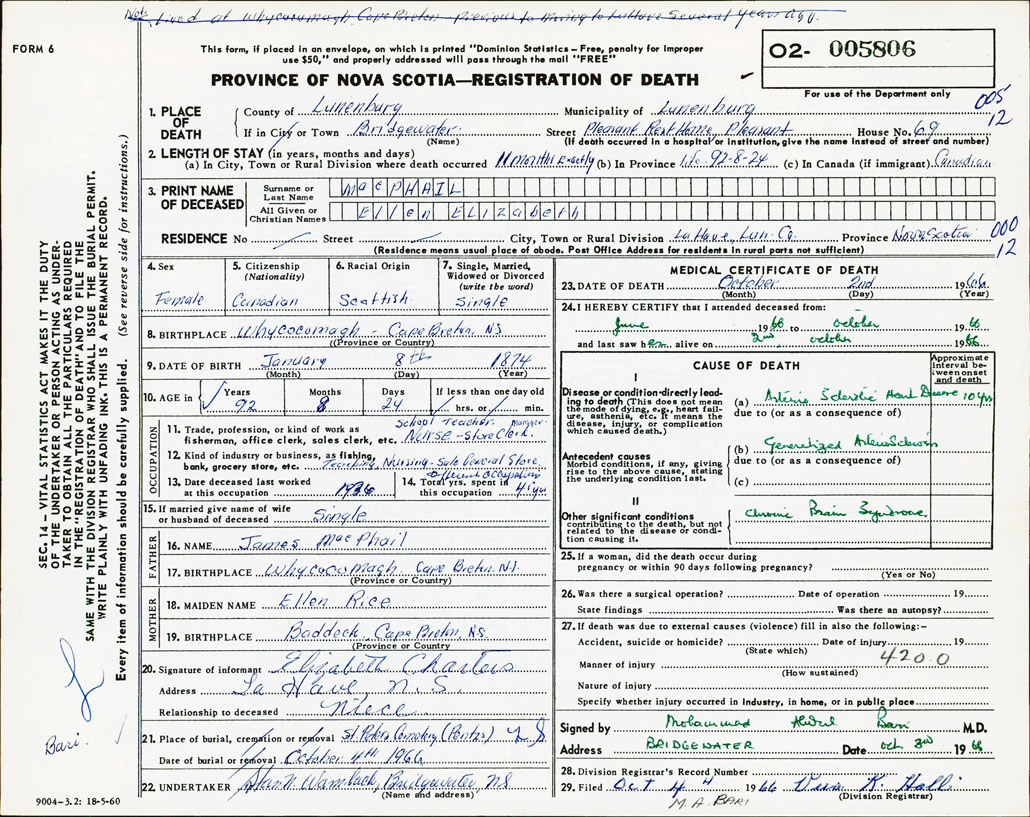 Note: Lived at Whycocomagh, Cape Breton - Previous to Moving to LaHave Several Years ago.
FORM 6
This form, if placed in an envelope, on which is printed "Dominion Statistics – Free, penalty for improper
use $50," and properly addressed will pass through the mail "FREE"
PROVINCE OF NOVA SCOTIA—REGISTRATION OF DEATH
O2- 005806
For use of the Department only
005
12
1. PLACE OF DEATH
County of Lunenburg Municipality of Lunenburg
If in City or Town Bridgewater Street Pleasant Rest Home, Pleasant House No. 69
(Name) (If death occurred in a hospital or institution, give the name instead of street and number)
2. LENGTH OF STAY (in years, months and days)
(a) In City, Town or Rural Division where death occurred 11 months Exactly (b) In Province life 92-8-24 (c) In Canada (if immigrant) Canadian
3. PRINT NAME OF DECEASED
Surname or Last Name MacPHAIL
All Given or Christian Names Ellen ELizabeth
RESIDENCE No Street City, Town or Rural Division LaHave, Lun. Co. Province Nova Scotia
000
12
(Residence means usual place of abode. Post Office Address for residents in rural parts not sufficient)
4. Sex
Female
5. Citizenship
(Nationality)
Canadian
6. Racial Origin
Scottish
7. Single, Married,
Widowed or Divorced
(write the word)
Single
8. BIRTHPLACE Whycocomagh - Cape Breton, NS
(Province or Country)
9. DATE OF BIRTH January 8th 1874
(Month) (Day) (Year)
10. AGE in Years Months Days If less than one day old
92 8 24 hrs. or min.
OCCUPATION
School Teacher
11. Trade, profession, or kind of work as
fisherman, office clerk, sales clerk, etc. Nurse - Store Clerk.
12. Kind of industry or business, as fishing,
bank, grocery store, etc. Teaching, Nursing - General Store
13. Date deceased last worked
at this occupation 1936
14. Total yrs. spent in
this occupation
15. If married give name of wife
or husband of deceased Single
FATHER
16. NAME James MacPhail
17. BIRTHPLACE Whycocomagh Cape Breton, N.S.
(Province or Country)
MOTHER
18. MAIDEN NAME Ellen Rice
19. BIRTHPLACE Baddeck, Cape Breton, N.S.
(Province or Country)
20. Signature of informant Elizabeth Charters
Address La Have, N.S.
Relationship to deceased Niece
21. Place of burial, cremation or removal St Peters Cemetery N S
Date of burial or removal October 4th 1966
22. UNDERTAKER Wambach, Bridgewater NS
(Name and address)
MEDICAL CERTIFICATE OF DEATH
23. DATE OF DEATH October 2nd 1966
(Month) (Day) (Year)
24. I HEREBY CERTIFY that I attended deceased from:
June 1966 to October 1966
and last saw her alive on 2nd October 1966
CAUSE OF DEATH
Approximate
interval be-
tween onset
and death
I
Disease or condition directly lead-
ing to death (This does not mean
the mode of dying, e.g., heart fail-
ure, asthenia, etc. It means the
disease, injury, or complication
which caused death.)
(a) Arterio Sclerotic Heart Disease 10 yrs
due to (or as a consequence of)
Antecedent causes
Morbid conditions, if any, giving
rise to the above cause, stating
the underlying condition last.
(b) Generalized Arteriosclerosis
due to (or as a consequence of)
(c)
II
Other significant conditions
contributing to the death, but not
related to the disease or condi-
tion causing it.
Chronic Brain Syndrome
25. If a woman, did the death occur during
pregnancy or within 90 days following pregnancy?
(Yes or No)
26. Was there a surgical operation? Date of operation 19
State findings Was there an autopsy?
27. If death was due to external causes (violence) fill in also the following:–
Accident, suicide or homicide? Date of injury 19
(State which)
Manner of injury 420.0
(How sustained)
Nature of injury
Specify whether injury occurred in industry, in home, or in public place
Signed by Mohammad Abdul Bari M.D.
Address BRIDGEWATER Date Oct 3rd 1966
28. Division Registrar's Record Number
29. Filed Oct 4 1966 K. Hall
(Division Registrar)
M. A. BARI
SEC. 14 – VITAL STATISTICS ACT MAKES IT THE DUTY
OF THE UNDERTAKER OR PERSON ACTING AS UNDER-
TAKER TO OBTAIN ALL THE PARTICULARS REQUIRED
IN THE "REGISTRATION OF DEATH" AND TO FILE THE
SAME WITH THE DIVISION REGISTRAR WHO SHALL ISSUE THE BURIAL PERMIT.
WRITE PLAINLY WITH UNFADING INK. THIS IS A PERMANENT RECORD.
Every item of information should be carefully supplied. (See reverse side for instructions.)
Bari.
9004–3.2: 18-5-60